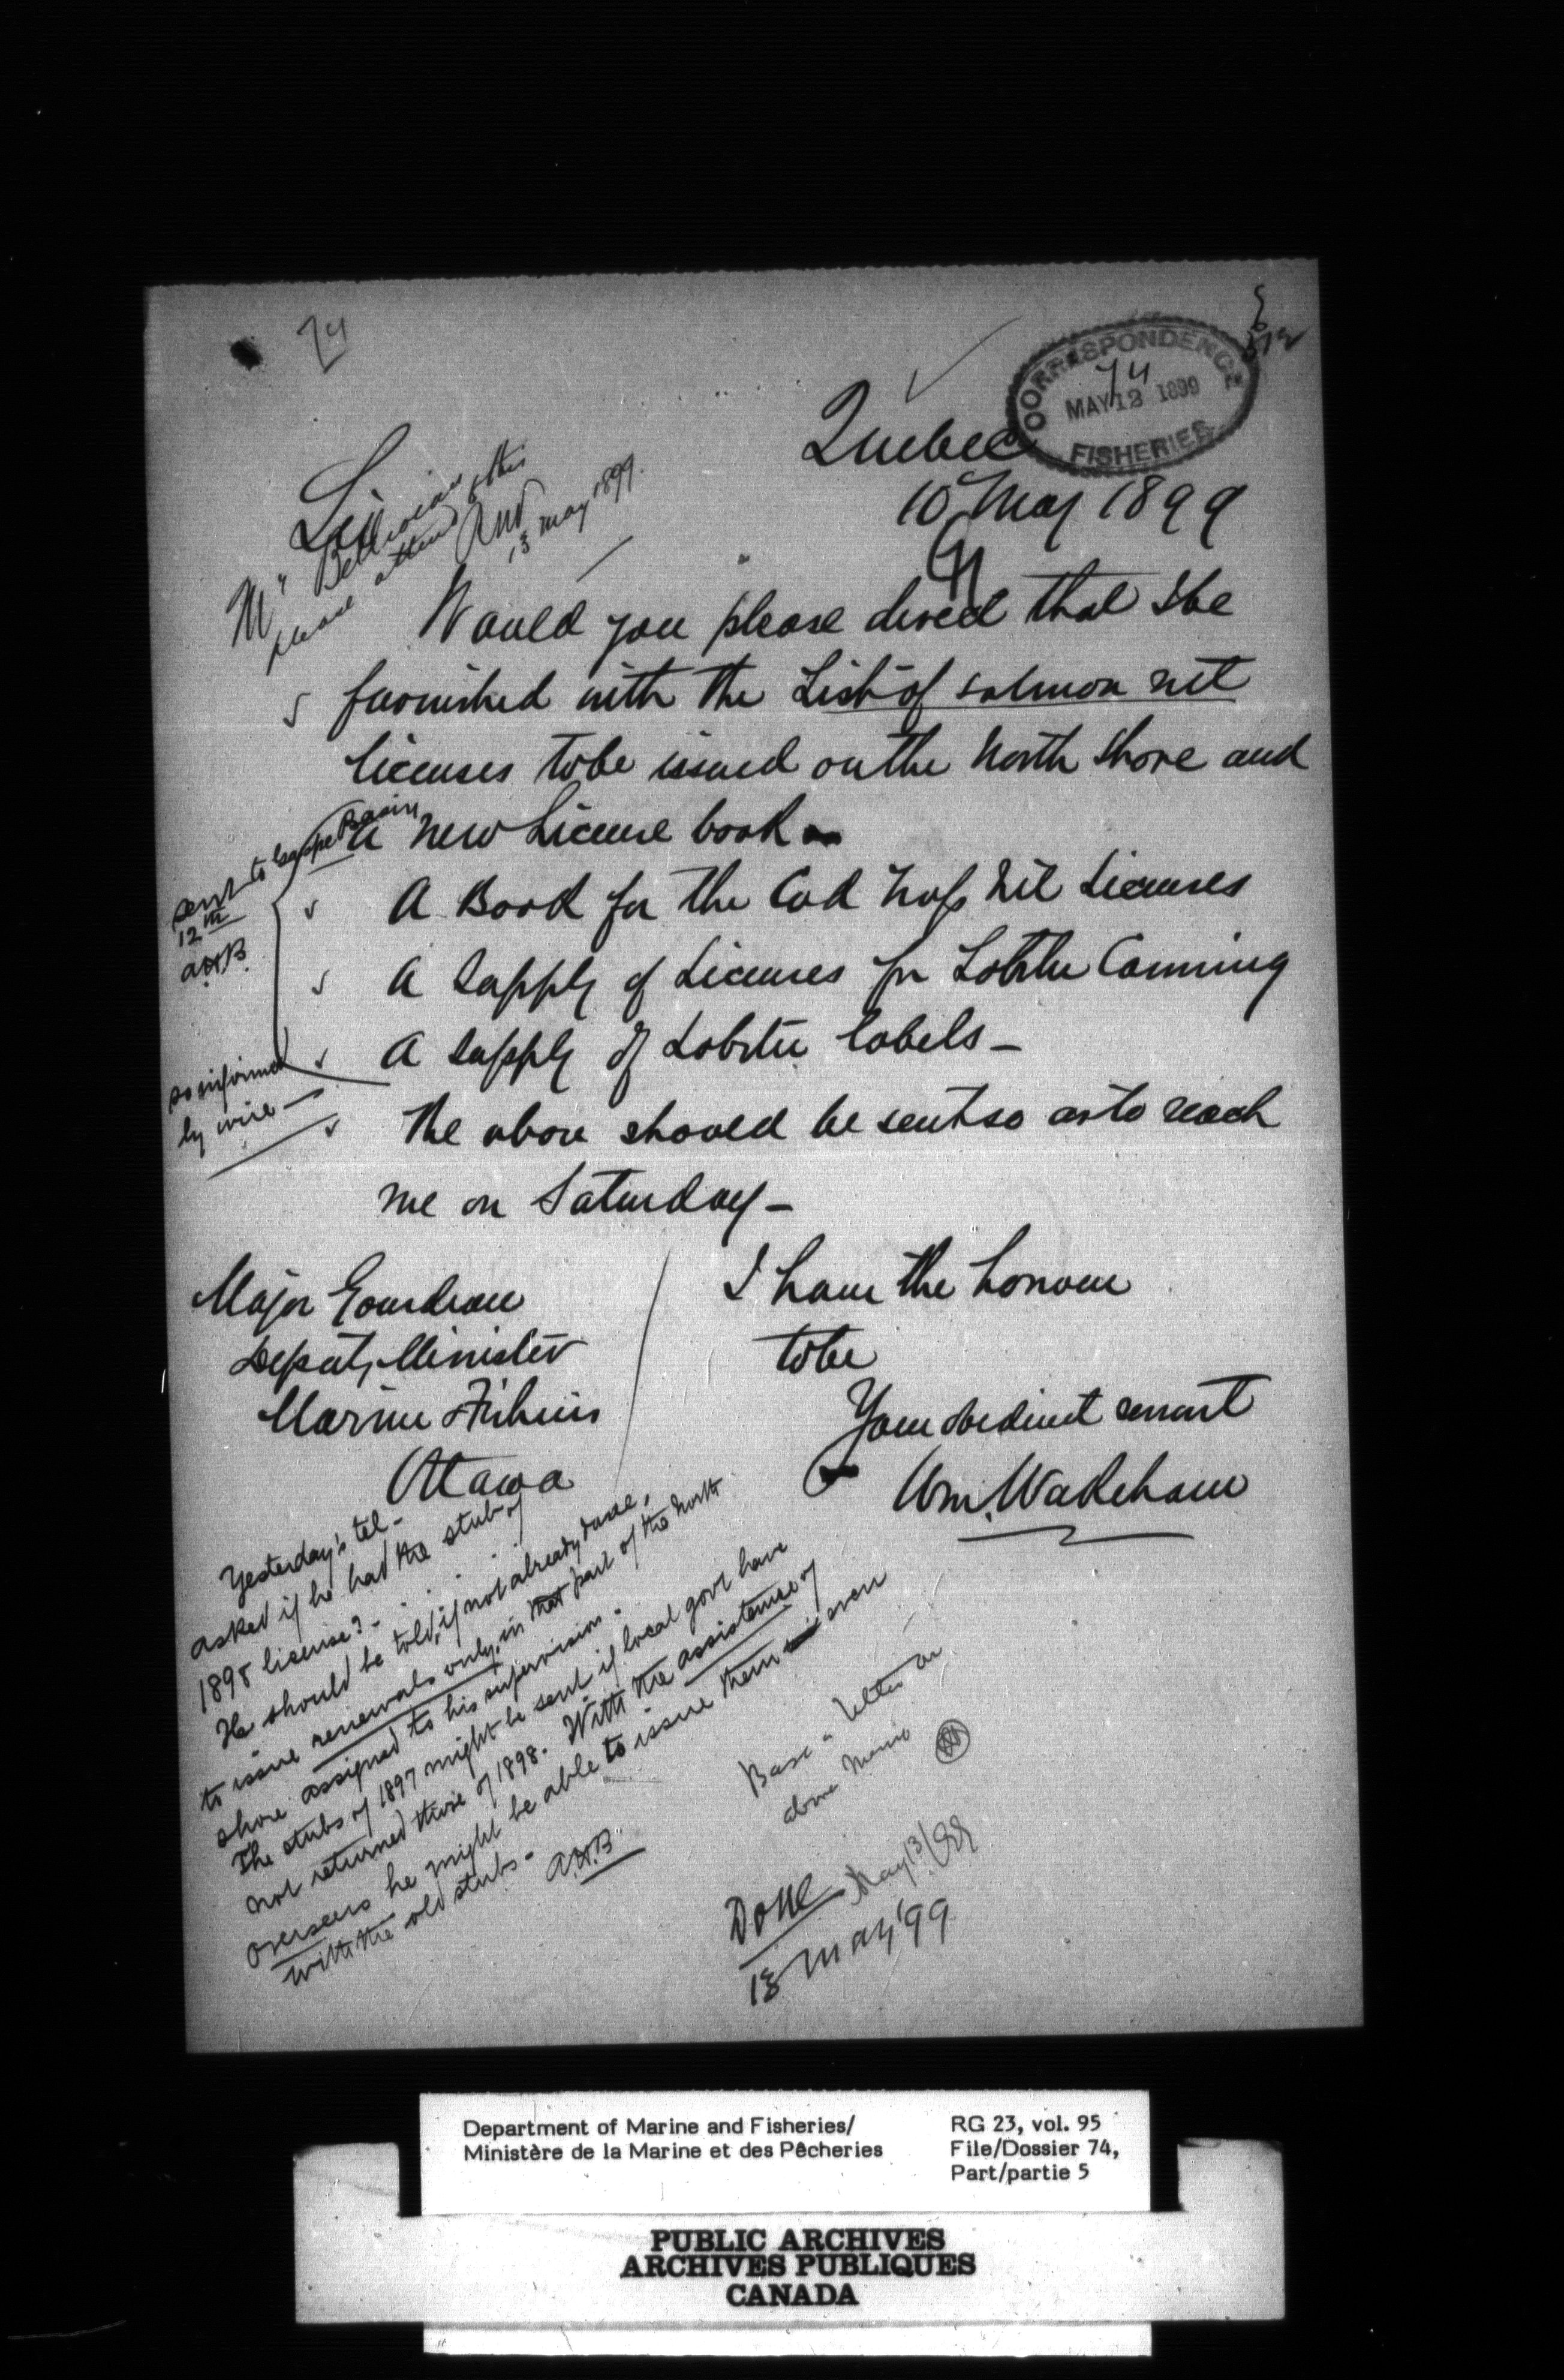 74
CORRESPONDENCE
74
MAY 12 1899
FISHERIES
Quebec
10 May 1899
Sir
Mr Belliveau
please attend to this
13 May 1899.
Would you please direct that I be
furnished with the List of salmon net
licenses to be issued on the North Shore and
a new License book
A Book for the Cod Trap Net Licenses
A Supply of Licenses for Lobster Canning
A supply of Lobster labels -
The above should be sent so as to reach
me on Saturday -
sent to Gaspe Basin
12th
A.H.B.
so informed
by wire -
I have the honour
to be
Your obedient servant
Wm. Wakeham
Major Gourdeau
Deputy Minister
Marine & Fisheries
Ottawa
Yesterday's tel -
asked if he had the stubs of
1898 license? -
He should be told, if not already done,
to issue renewals only, in that part of the north
shore assigned to his supervision.
The stubs of 1897 might be sent if local govt have
not returned those of 1898. With the assistance of
overseers he might be able to issue them even
with the old stubs -
A.H.B.
Base a letter on
above memo
May 13/99
Done
13 May '99
Department of Marine and Fisheries/
Ministère de la Marine et des Pêcheries
RG 23, vol. 95
File/Dossier 74,
Part/partie 5
PUBLIC ARCHIVES
ARCHIVES PUBLIQUES
CANADA